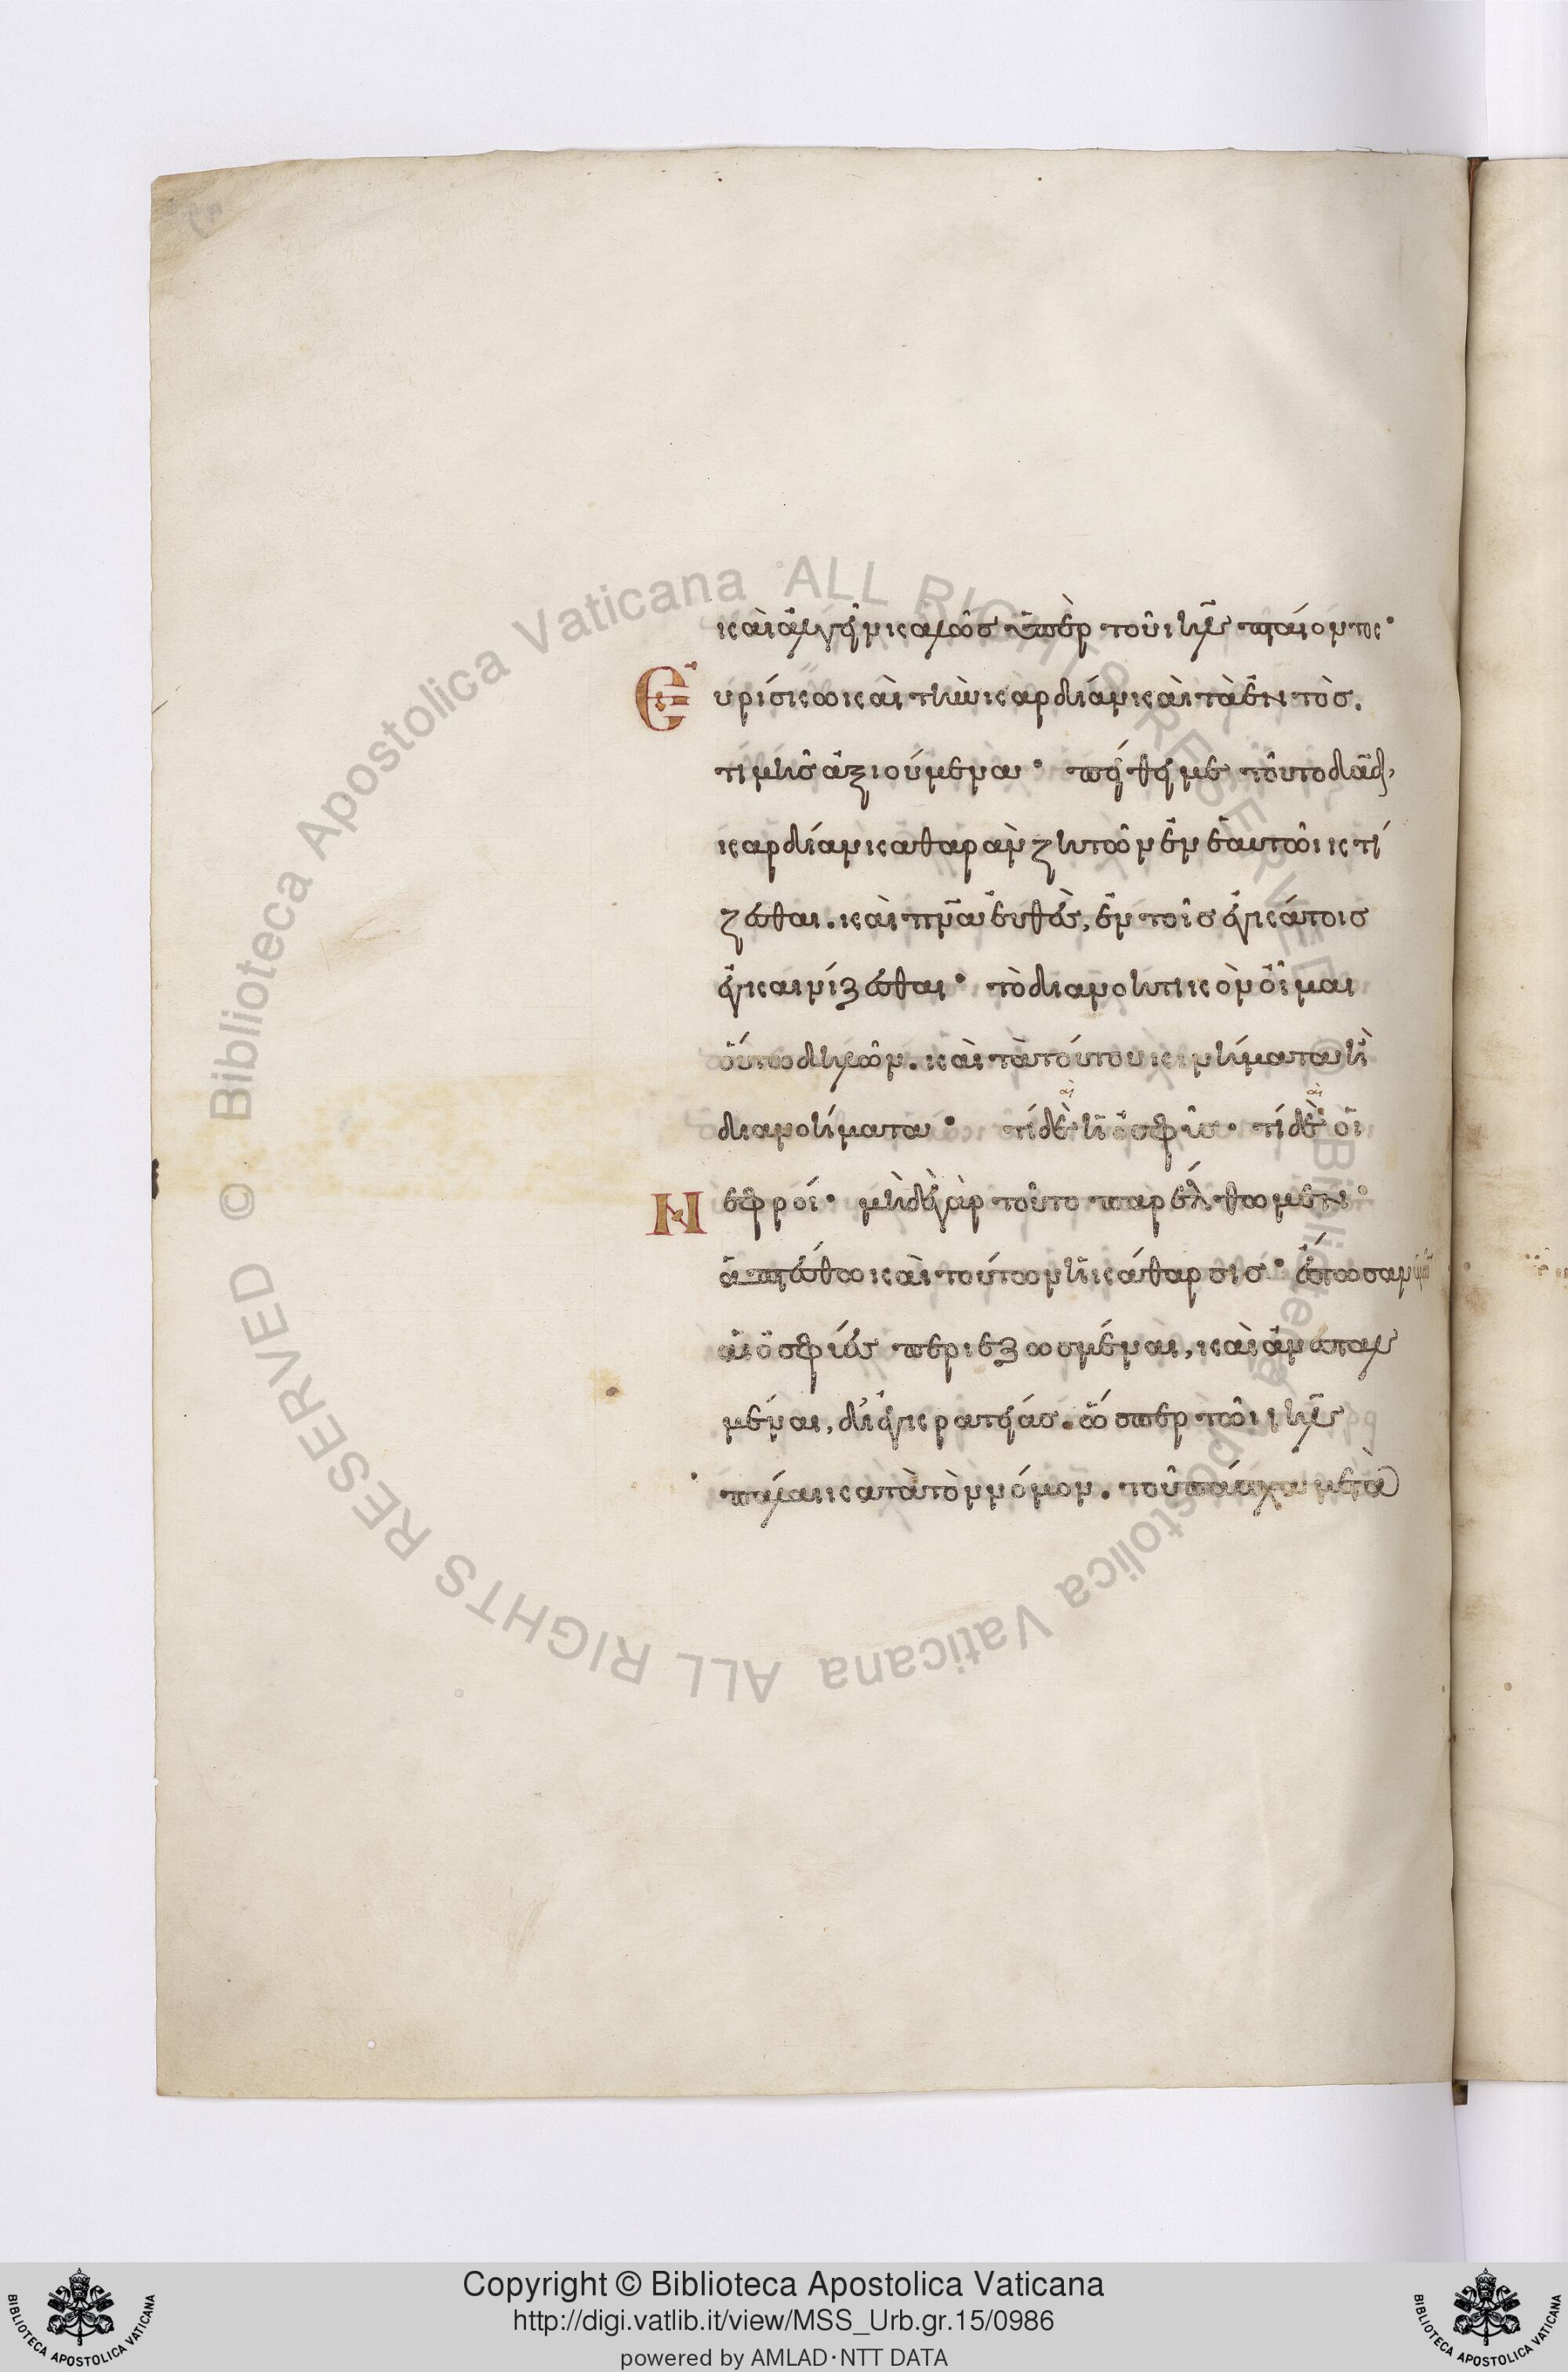 καὶ ἀλγεῖν καλῶς ὑπὲρ τοῦ ἰηλ πταίοντος·
Εὑρίσκω καὶ τὴν καρδίαν καὶ τὰ ἐντὸς.
τιμῆς ἀξιούμενα· πείθει με τοῦτο δαδ,
καρδίαν καθαρὰν ζητῶν ἐν ἑαυτῶι κτί
ζεσθαι. καὶ πνα εὐθὲς, ἐν τοῖς ἐγκάτοις
ἐγκαινίζεσθαι· τὸ διανοητικὸν οἶμαι
οὕτω δηλῶν. καὶ τὰ τούτου κινήματα ἢ
διανοήματα· τί δὲ ἡ ὀσφῦς· τί δὲ οἱ
Νεφροί· μηδὲ γὰρ τοῦτο παρέλθωμεν·
ἁπτέσθω καὶ τούτων ἡ κάθαρσις· ἔστωσαν ἡμῶν
αἱ ὀσφύες περιεζωσμέναι, καὶ ἀνεσταλ
μέναι, δι' ἐγκρατείας. ὥσπερ τῶι ἰηλ
πάλαι κατὰ τὸν νόμον. τοῦ πάσχα μετα
Copyright © Biblioteca Apostolica Vaticana
http://digi.vatlib.it/view/MSS_Urb.gr.15/0986
powered by AMLAD·NTT DATA
BIBLIOTECA APOSTOLICA VATICANA
BIBLIOTECA APOSTOLICA VATICANA
© Biblioteca Apostolica Vaticana ALL RIGHTS RESERVED
© Biblioteca Apostolica Vaticana ALL RIGHTS RESERVED